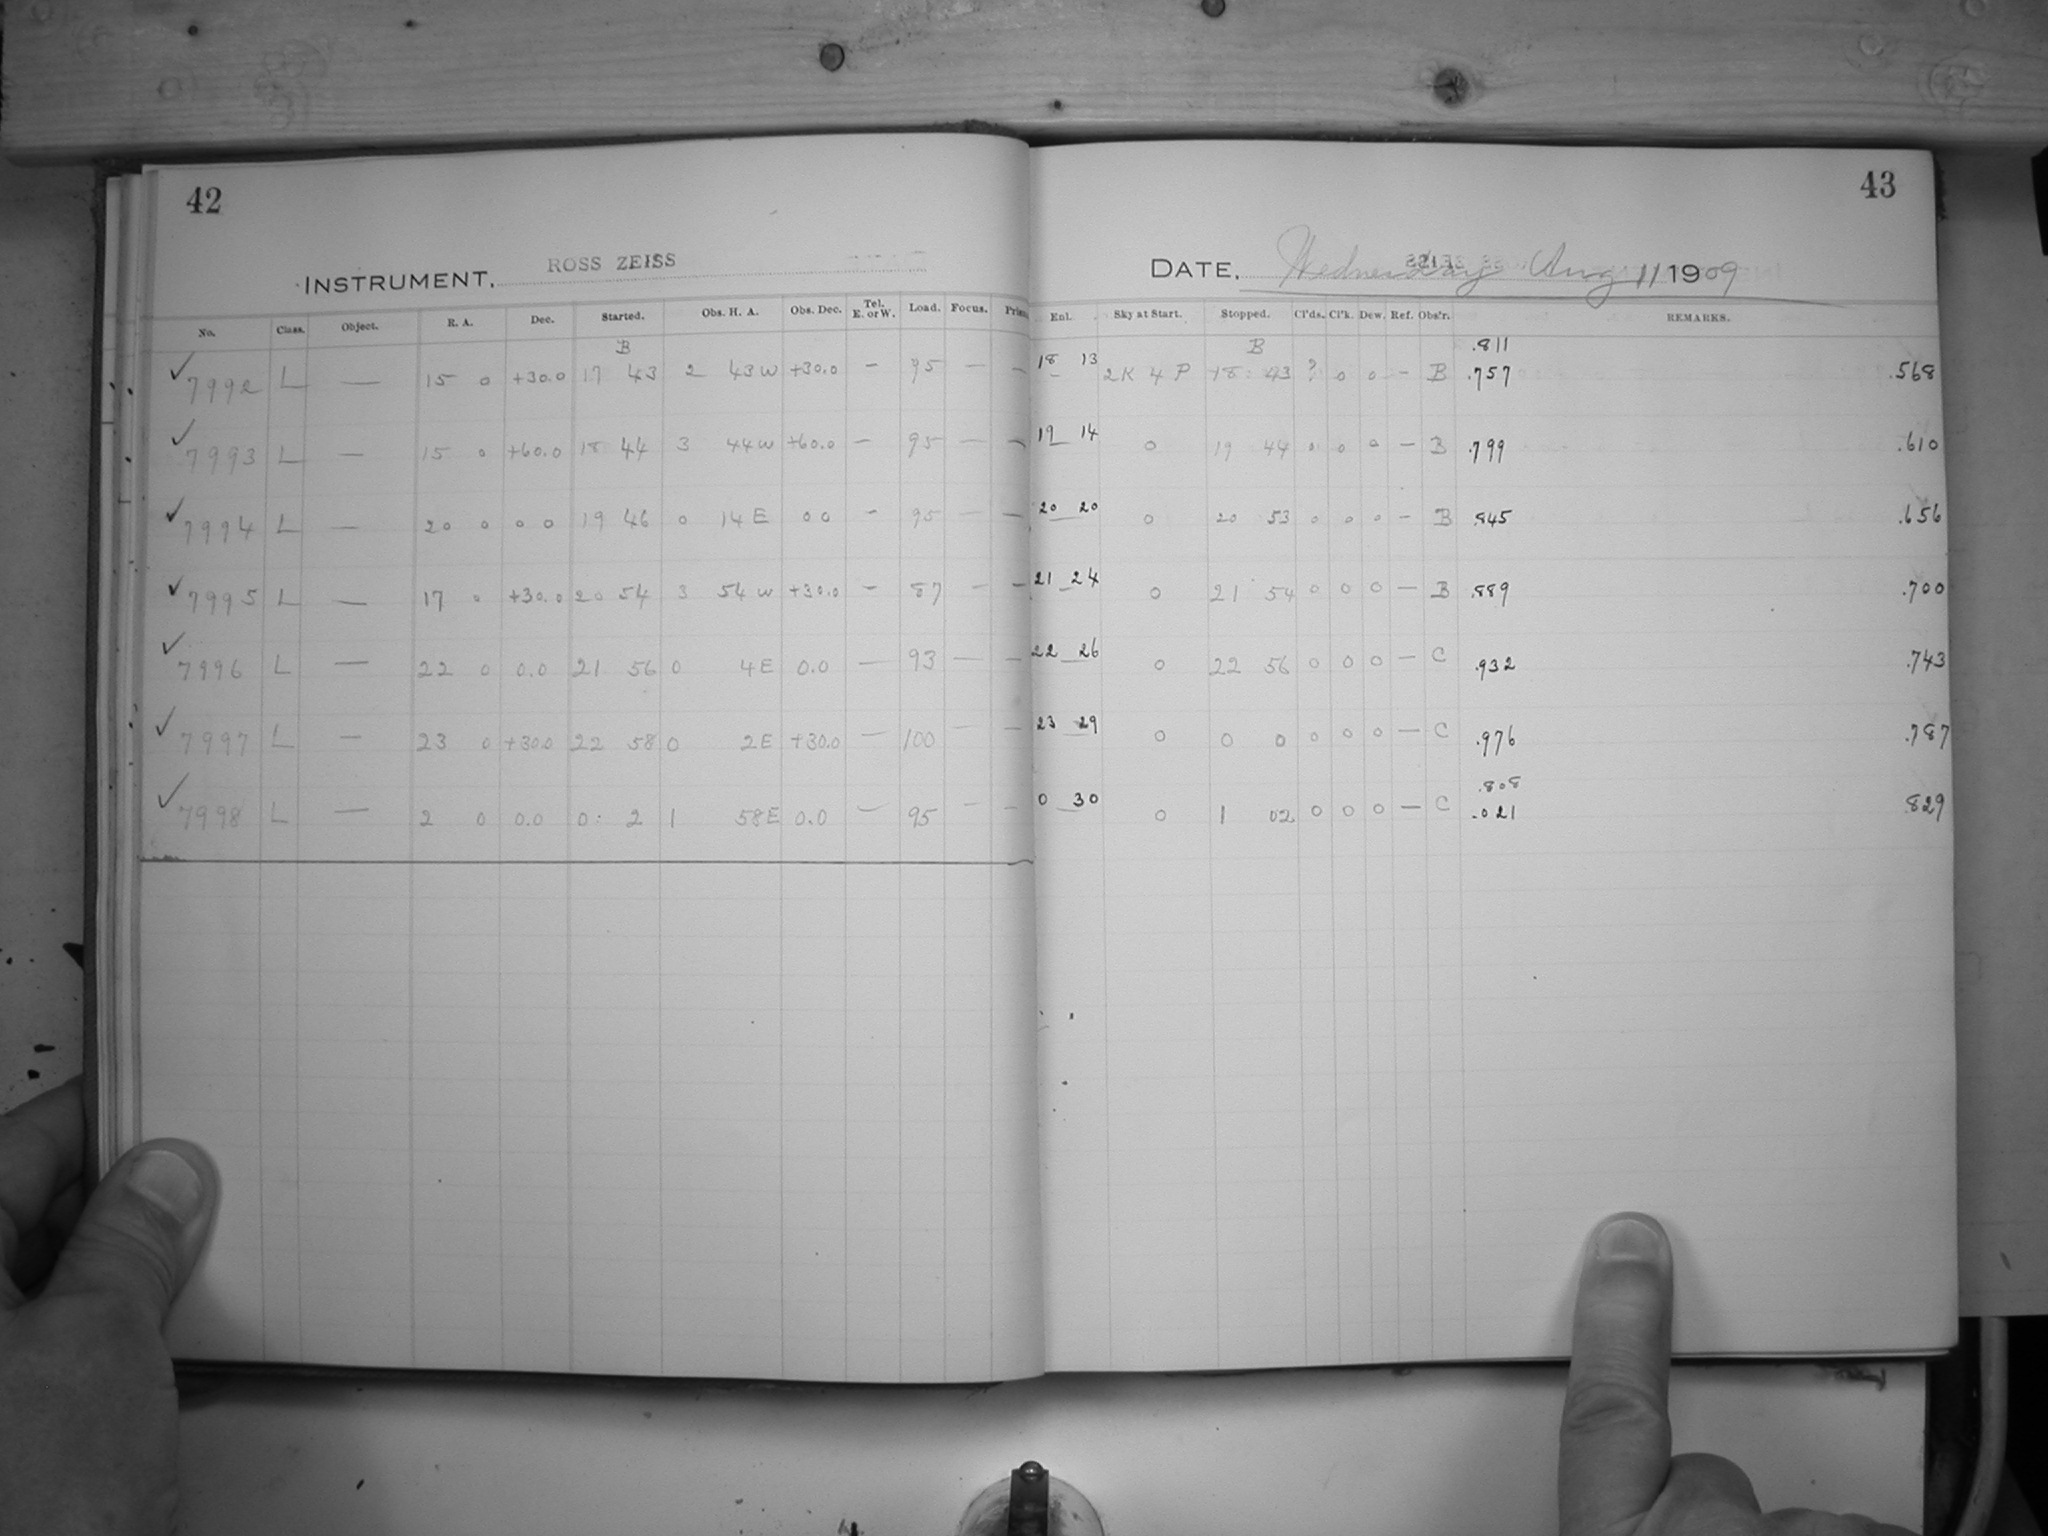 42
INSTRUMENT. ROSS ZEISS
No. Class. Object. R. A. Dec. Started. Obs. H. A. Obs. Dec. Tel. E. or W. Load. Focus.
B
7992 L — 15 0 +30.0 17 43 2 43 W +30.0 — 95 — —
7993 L — 15 0 +60.0 18 44 3 44 W +60.0 — 95 — —
7994 L — 20 0 0 0 19 46 0 14 E 0 0 — 95 — —
7995 L — 17 0 +30.0 20 54 3 54 W +30.0 — 87 — —
7996 L — 22 0 0.0 21 56 0 4 E 0.0 — 93 — —
7997 L — 23 0 +30.0 22 58 0 2 E +30.0 — 100 — —
7998 L — 2 0 0.0 0 2 1 58 E 0.0 — 95 — —
43
DATE. Wednesday Aug 11 1909
Enl. Sky at Start. Stopped. Cl'ds. Cl'k. Dew. Ref. Obs'r. REMARKS.
B .811
18 13 2K 4 P 18 43 ? 0 0 — B .757 .568
19 14 0 19 44 0 0 0 — B .799 .610
20 20 0 20 53 0 0 0 — B .845 .656
21 24 0 21 54 0 0 0 — B .889 .700
22 26 0 22 56 0 0 0 — C .932 .743
23 29 0 0 0 0 0 0 — C .976 .787
.808
0 30 0 1 02 0 0 0 — C .021 .829